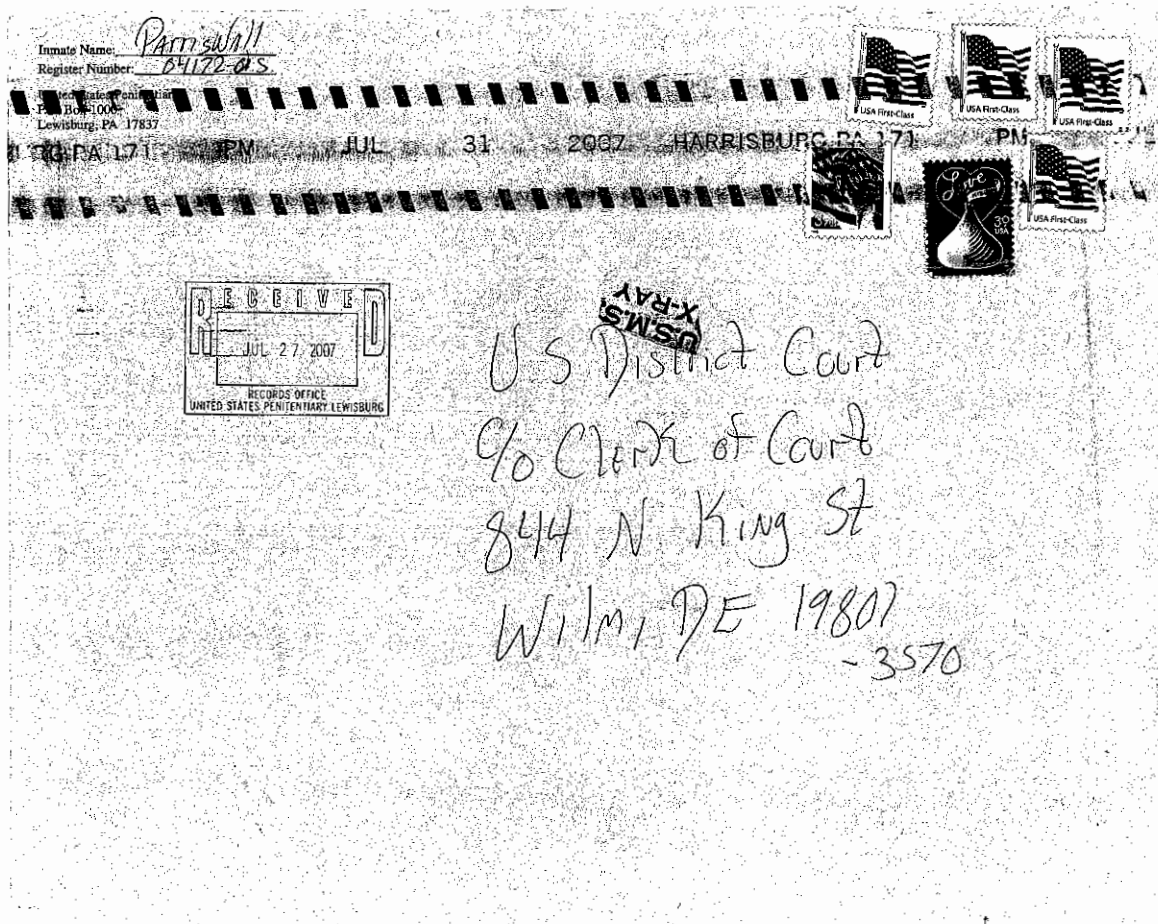 Inmate Name: Parris Wall
Register Number: 04172-015
United States Penitentiary
P.O. Box 1000
Lewisburg, PA 17837
USA First-Class
USA First-Class
USA First-Class
PA 171 PM JUL 31 2007 HARRISBURG PA 171 PM
Love
39
USA
USA First-Class
RECEIVED
JUL 27 2007
RECORDS OFFICE
UNITED STATES PENITENTIARY LEWISBURG
U.S.M.S.
X-RAY
U.S District Court
c/o Clerk of Court
844 N. King St
Wilm, DE 19801
-3570